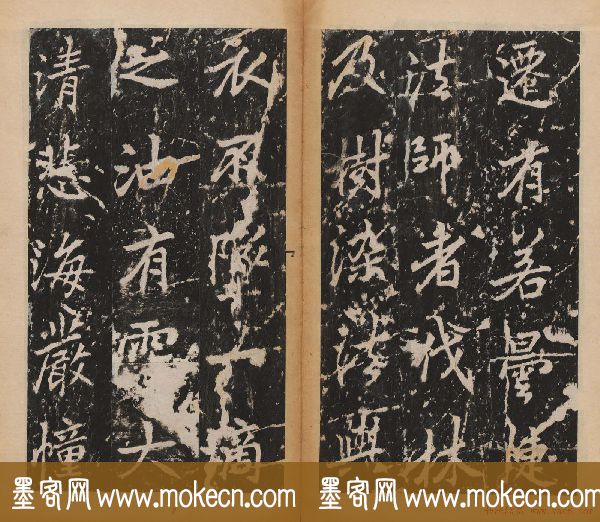 遷有若曇捷
法師者伐林
及樹染法與
衣不墜滴
油有大
清悲海嚴幢
墨客网 www.mokecn.com 墨客网 www.mokecn.com